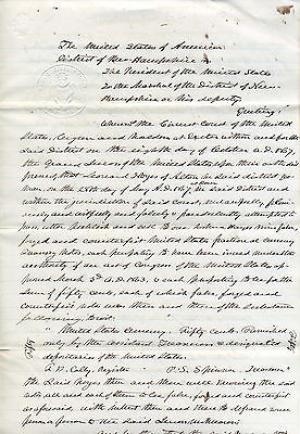 The United States of America
District of New Hampshire ss.
The President of the United States
To the Marshal of the District of New
Hampshire or his deputy
Greeting:
Whereas the Circuit Court of the United
States, begun and holden at Exeter within and for the
said District on the eighth day of October A.D. 1867,
the Grand Jurors of the United States upon their oath did
present that Leonard Keyes of in said district yeo-
man, on the 25th day of May A.D. 1867, in said District and
within the jurisdiction of said Court, unlawfully,
and falsely & fraudulently attempted to
pass, utter publish and sell to one
forged and counterfeit United States fractional currency
Treasury notes, each purporting to have been issued under the
authority of an act of Congress of the United States, ap-
proved March 3d A.D. 1863, & each purporting to be for the
sum of fifty cents, each of which false, forged and
counterfeit notes was then and there of the substance
following to wit:
"United States Currency. Fifty cents. Furnished
only by the assistant Treasurers & designated
depositaries of the United States.
Fifty
S. B. Colby Register F. E. Spinner Treasurer
the said Keyes then and there well knowing the said
notes all and each of them to be false, forged and counterfeit
as aforesaid, with intent then and there to defraud some
person & persons to the said Jurors unknown